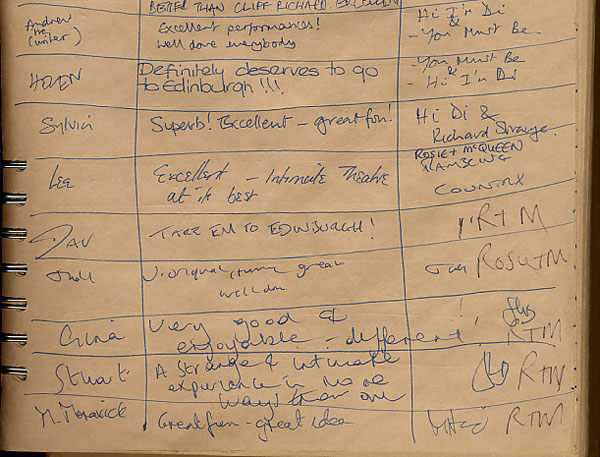 BETTER THAN CLIFF RICHARD. EXCELLENT
Andrew
(writer)
Excellent performances!
Well done everybody
Hi I'm Di
&
- You Must Be
HELEN
Definitely deserves to go
to Edinburgh!!!
- You Must Be
&
- Hi I'm Di
Sylvia
Superb! Excellent - great fun!
Hi Di &
Richard Strange
LEE
Excellent - Intimate Theatre
at its best
ROSIE + McQUEEN
COUNTRY
TAKE EM TO EDINBURGH!
RTM
V. original, great
well done
ROSIE TM
Gina
Very good &
enjoyable - different!
RTM
Stuart
A Strange & intimate
experience in more
ways than one
RTM
Great fun - great idea
RTM